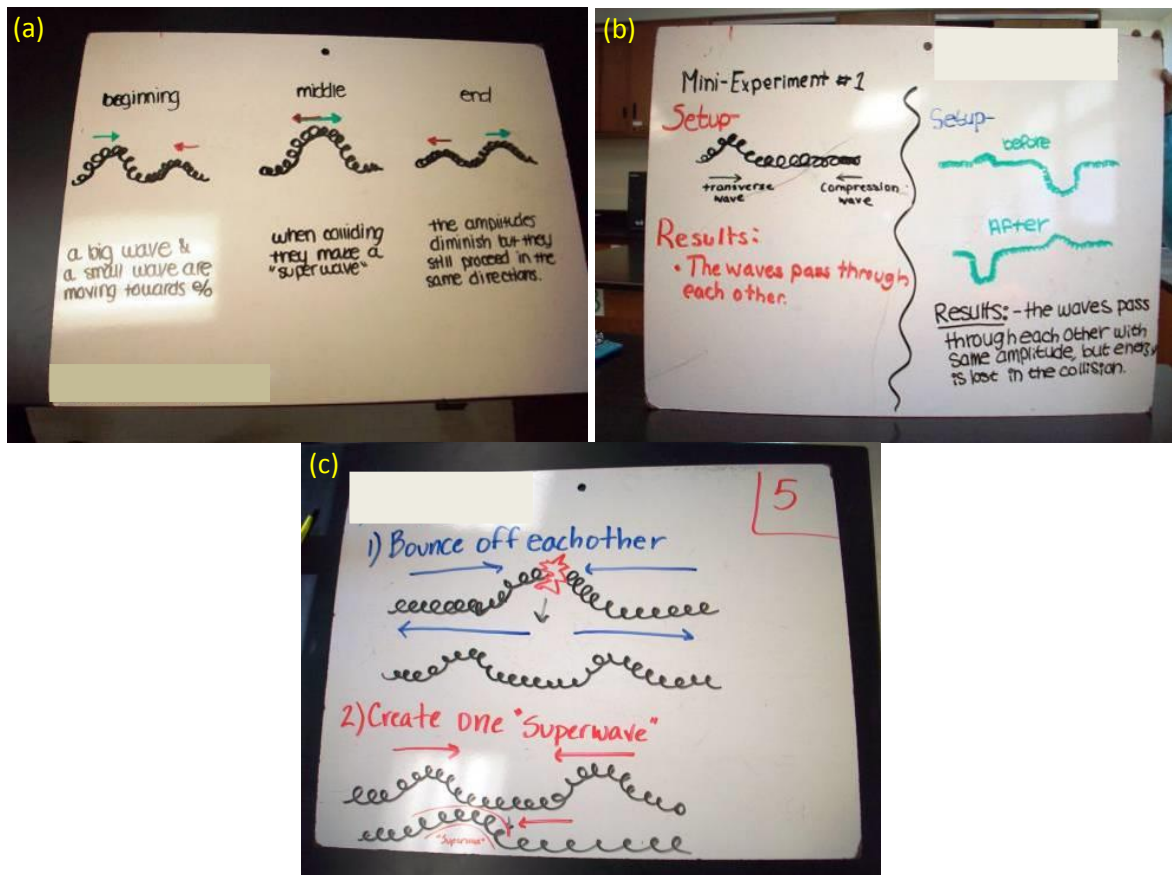 (a)
beginning
middle
end
a big wave &
a small wave are
moving towards e/o
when coliding
they make a
"superwave"
the amplitudes
diminish but they
still proceed in the
same directions.
(b)
Mini-Experiment #1
Setup-
transverse
wave
compression
wave
Results:
• The waves pass through
each other.
Setup-
before
After
Results: - the waves pass
through each other with
same amplitude, but energy
is lost in the collision.
(c)
5
1) Bounce off eachother
2) Create one "Superwave"